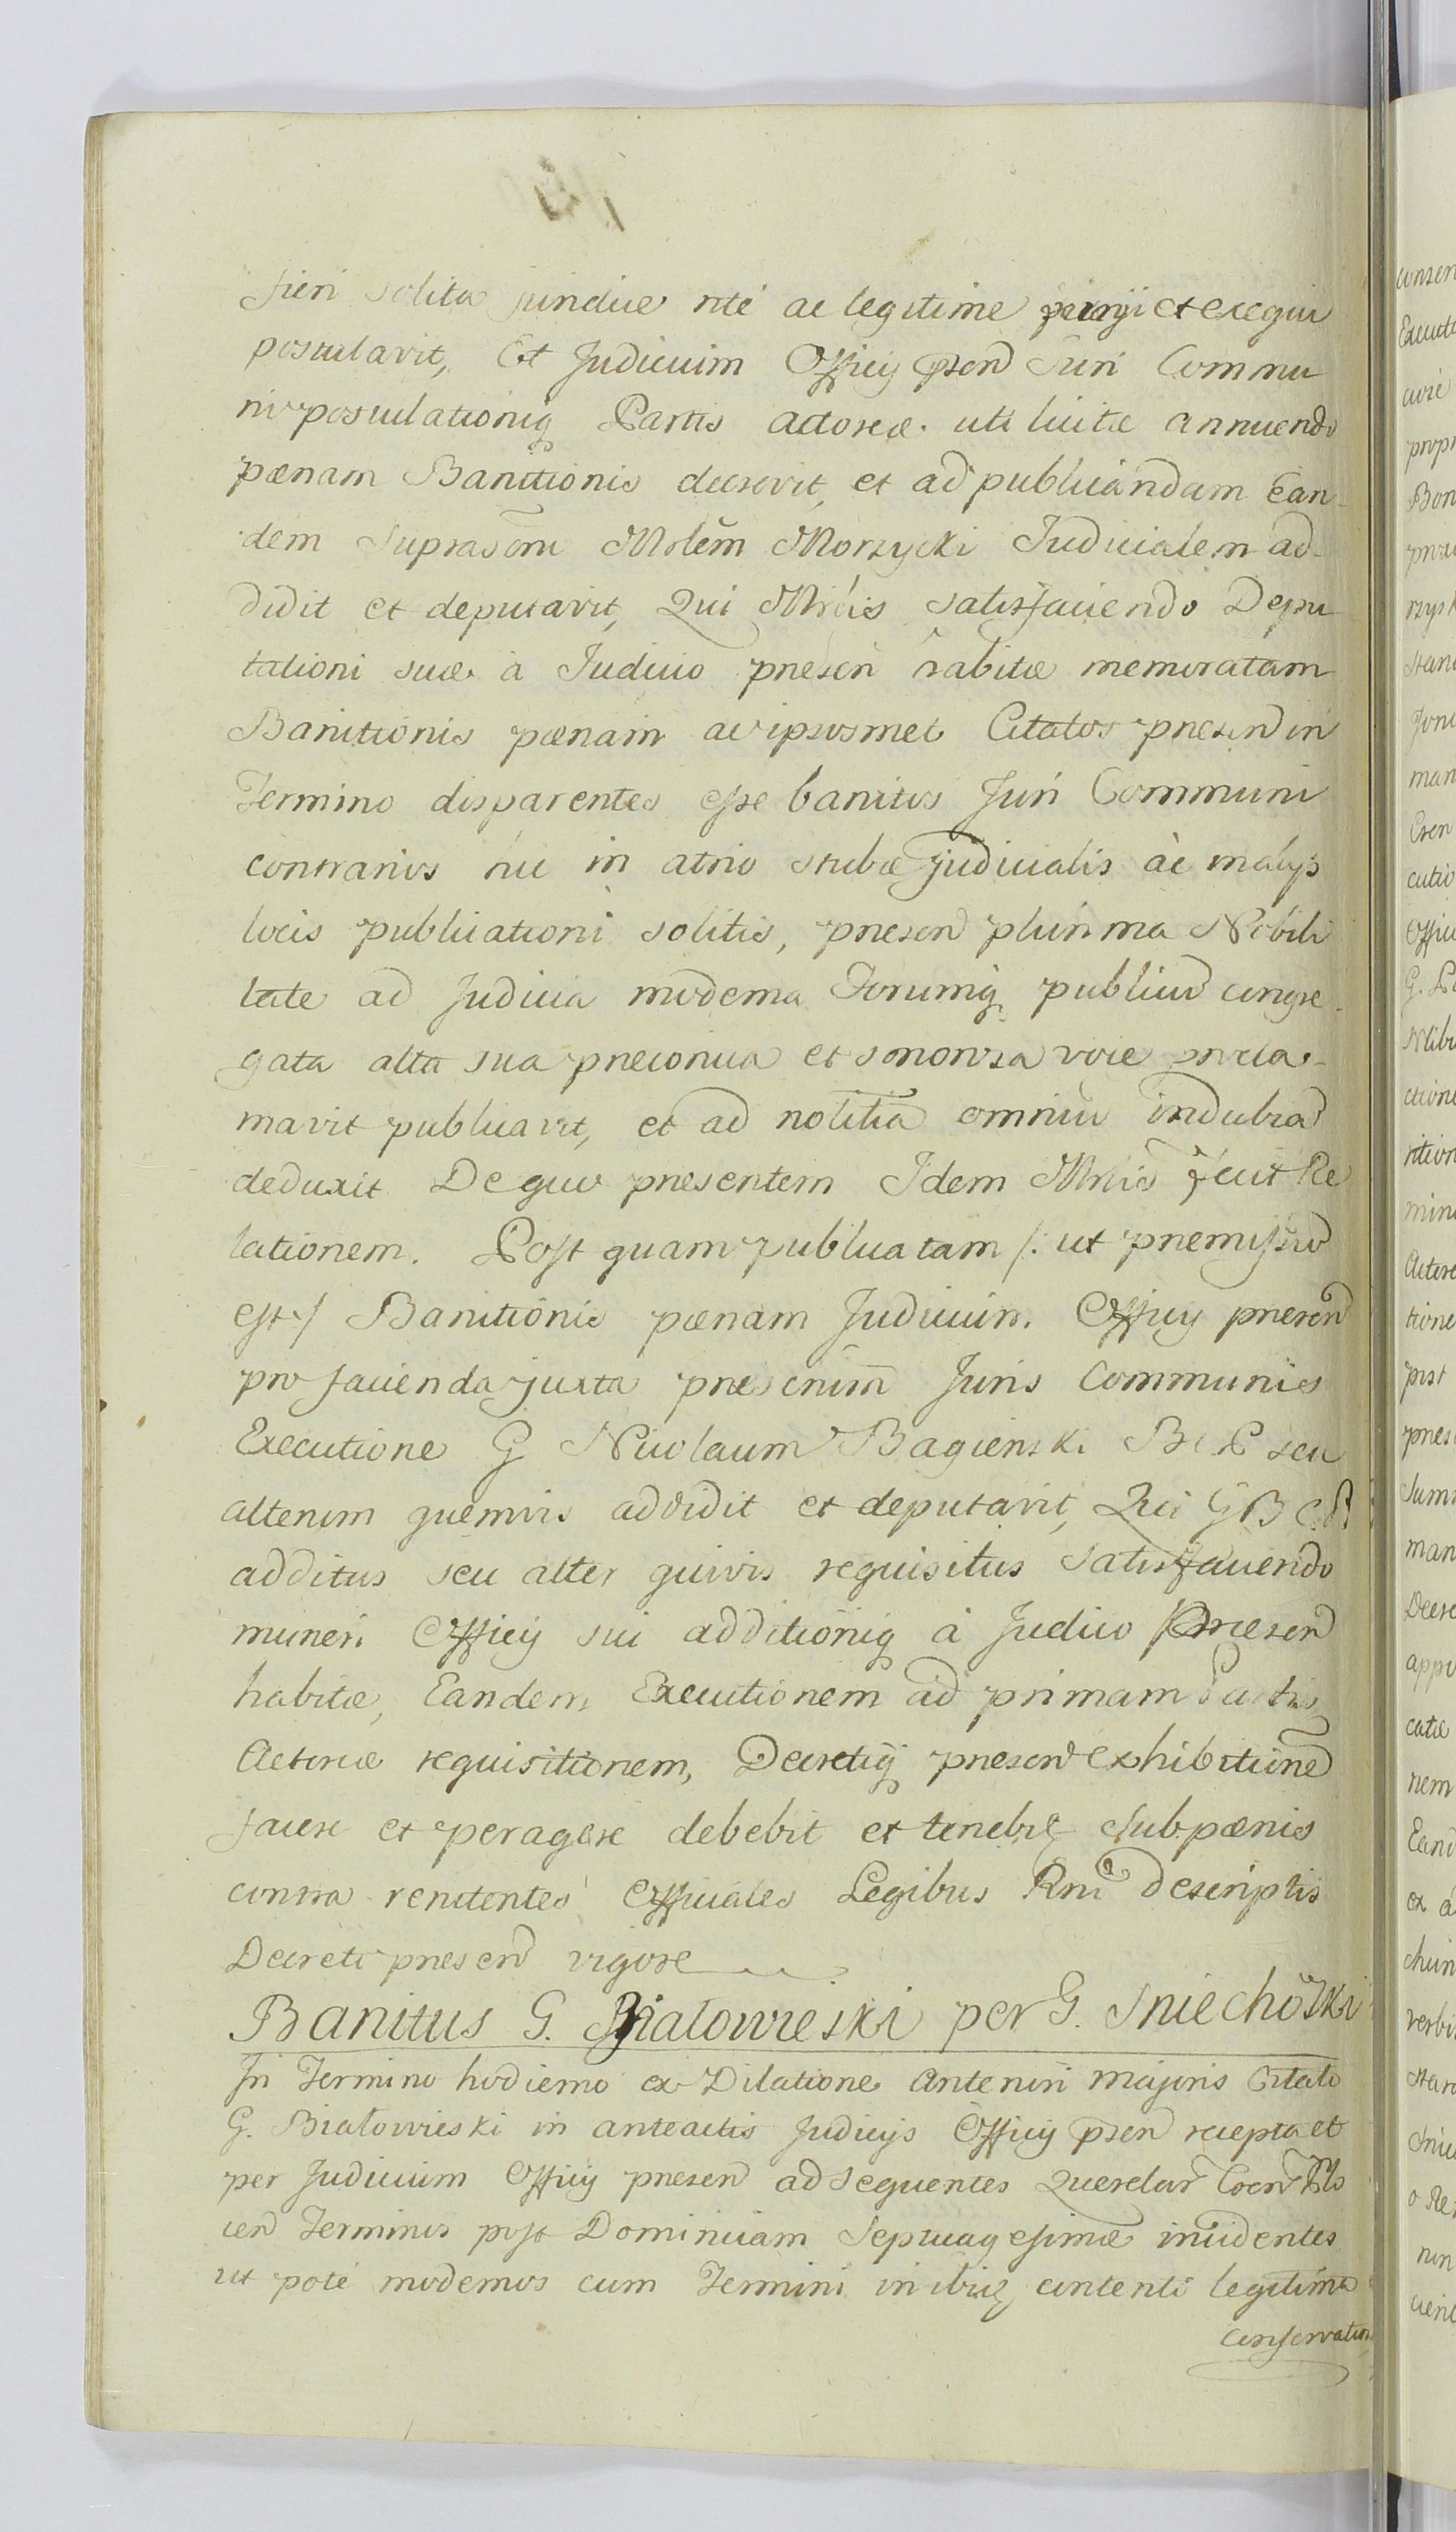 fieri solita juridice rite ac legitime peragi et exequi
postulavit, Et Judicium Officij psen Juri Commu
ni postulationiq Partis actoreæ uti licitæ annuendo
pænam Banitionis decrevit, et ad publicandam Ean-
dem Suprascm Mblem Morzycki Judicialem ad-
didit et deputavit, Qui Mrlis satisfaciendo Depu
tationi suæ à Judicio presen habitæ memoratam
Banitionis pænam ac ipsosmet Citatos presen in
Termino disparentes esse banitos Juri Communi
contrarios hic in atrio stubæ judicialis ac in alijs
locis publicationi solitis, presen plurima Nobili
tate ad Judicia moderna Forumq publicu congre-
gata alta sua preconica et sonorosa voce procla-
mavit publicavit, et ad notitia omniu indubia
deduxit De quo presentem Idem Mrlis fecit Re
lationem. Post quam publicatam /: ut premissu
est :/ Banitionis pænam Judicium Officij presen
pro facienda juxta prescrim Juris Communis
Executione G Nicolaum Bagienski B C P seu
alterum quemvis addidit et deputavit, Qui G B C P
additus seu alter quivis requisitus satisfaciendo
muneri Officij sui additioniq à Judicio Præsen
habitæ, Eandem Executionem ad primam Partis
Actoreæ requisitionem, Decretiq presen exhibitione
facere et peragere debebit et tenebit sub pænis
contra renitentes Officiales Legibus Rni descriptis
Decreti presen vigore
Banitus G. Białowieski per G. Sniechoski
In Termino hodierno ex Dilatione Anteriori majoris Citato
G. Białowieski in anteactis Judicijs Officij psen recepta et
per Judicium Officij presen ad sequentes Querelar
cen Terminos post Dominicam Septuagesimæ incidentes
ut poté modernos cum Termini in ibiq contenti legitima
conservation